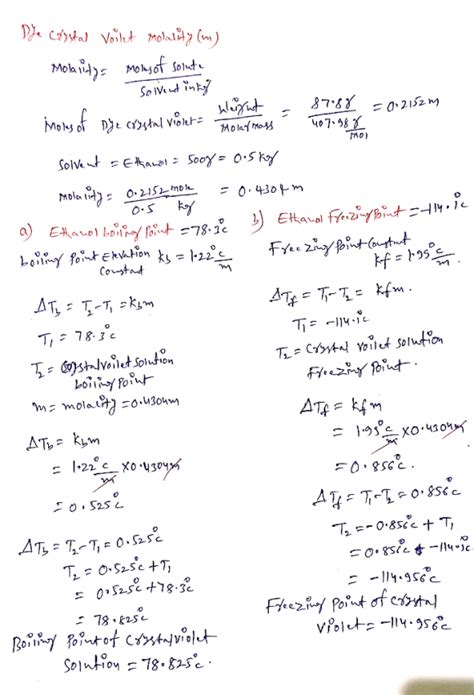 Dye Crystal Voilet Molality (m)
Molality = Moles of Solute / Solvent in kg
Moles of Dye crystal violet = Weight / Molar mass = 87.8g / 407.98 g/mol = 0.2152 m
Solvent = Ethanol = 500g = 0.5 kg
Molality = 0.2152 mole / 0.5 kg = 0.4304 m
a) Ethanol boiling point = 78.3°c
boiling Point Elevation Constant kb = 1.22 °c/m
ΔTb = T2-T1 = kbm
T1 = 78.3°c
T2 = Crystal voilet solution
boiling point
m = molality = 0.4304m
ΔTb = kbm
= 1.22 °c/m × 0.4304m
= 0.525°c
ΔTb = T2-T1 = 0.525°c
T2 = 0.525°c + T1
= 0.525°c + 78.3°c
= 78.825°c
Boiling Point of Crystal violet
Solution = 78.825°c.
b) Ethanol Freezing Point = -114.1°c
Freezing point Constant
kf = 1.99 °c/m
ΔTf = T1-T2 = kfm.
T1 = -114.1°c
T2 = Crystal voilet solution
Freezing Point.
ΔTf = kfm
= 1.99 °c/m × 0.4304m
= 0.856°c.
ΔTf = T1-T2 = 0.856°c
T2 = -0.856°c + T1
= 0.856°c + -114.1°c
= -114.956°c
Freezing Point of crystal
violet = -114.956°c